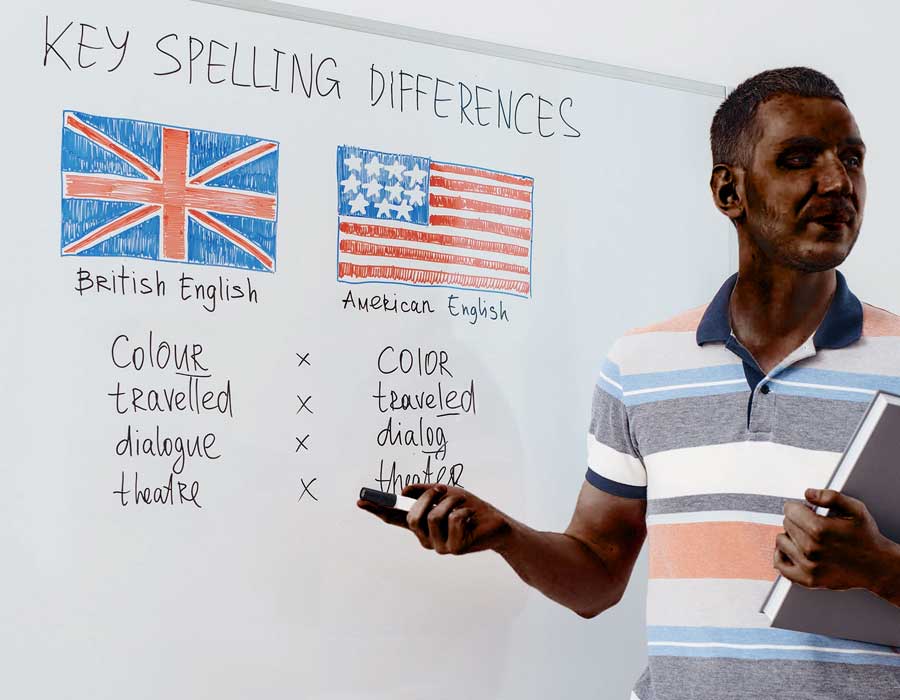 KEY SPELLING DIFFERENCES
British English
American English
Colour x COLOR
travelled x traveled
dialogue x dialog
theatre x theater